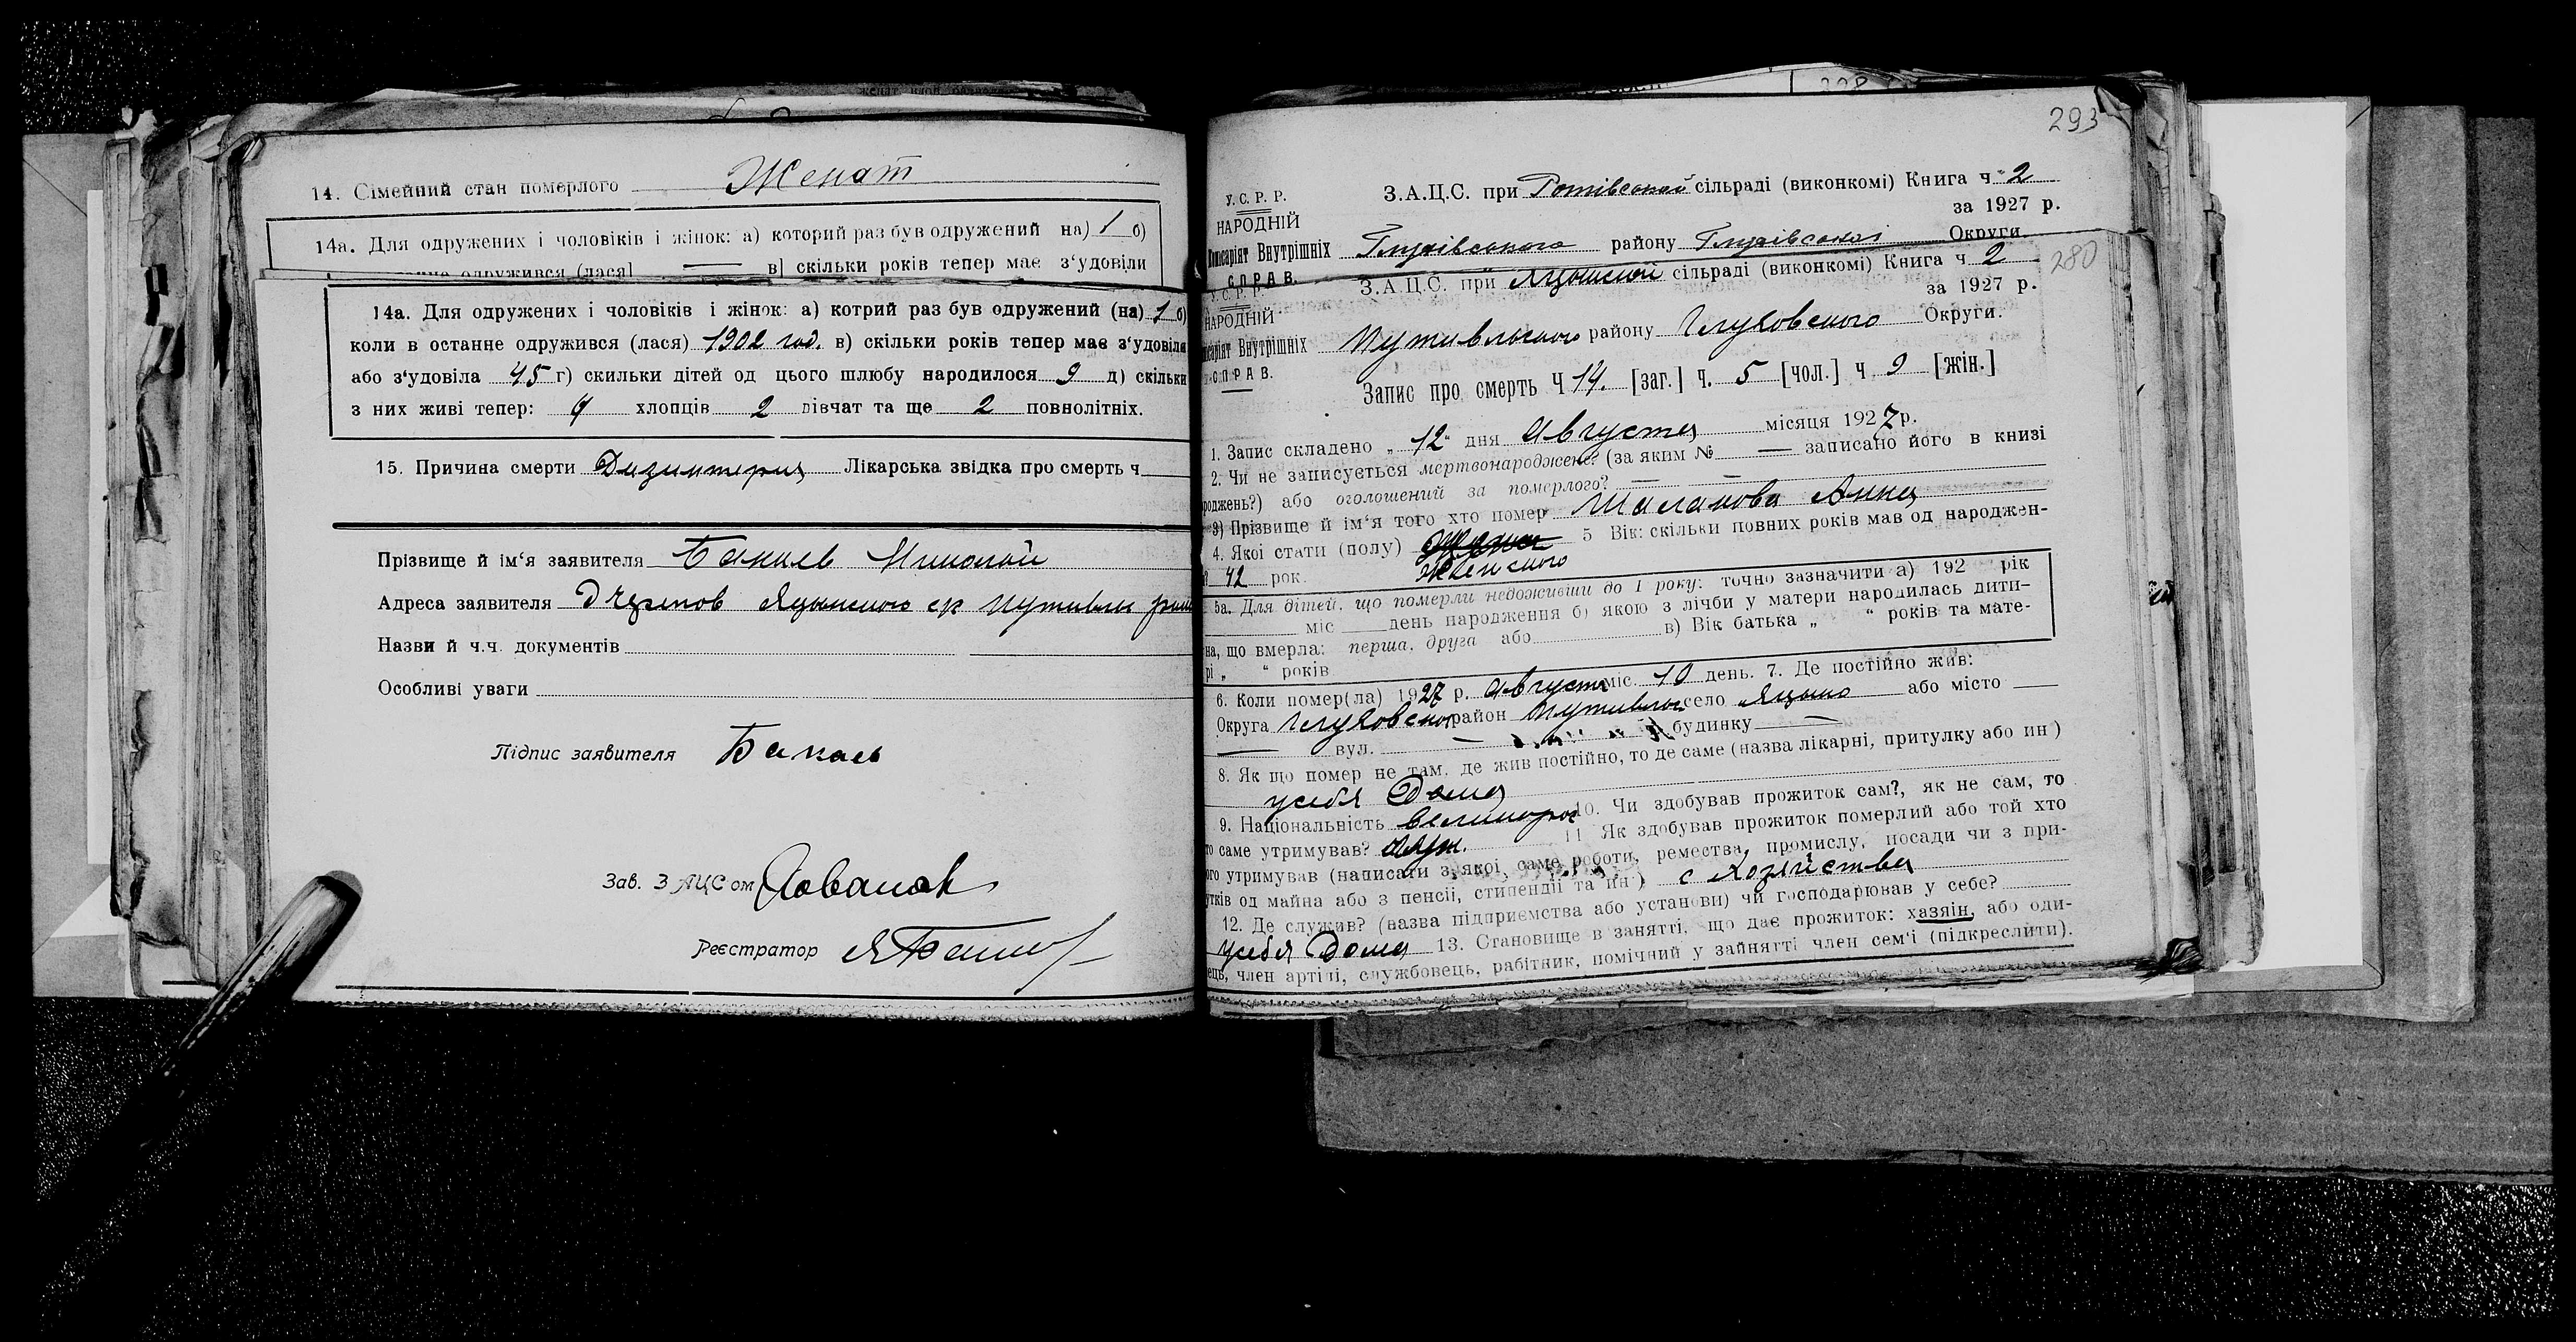 14. Сімейний стан померлого Женат
14а. Для одружених і чоловіків і жінок: а) которий раз був одружений на) 1 б)
одружився (лася) — в] скільки років тепер має з‘удовіли
14а. Для одружених і чоловіків і жінок: а) котрий раз був одружений (на) 1 б)
коли в останне одружився (лася) 1902 год. в) скільки років тепер має з‘удовіля
або з‘удовіла 45 г) скильки дітей од цього шлюбу народилося 9 д) скільки
з них живі тепер: хлопців 2 дівчат та ще 2 повнолітніх.
15. Причина смерти Дизинтерия Лікарська звідка про смерть ч
Прізвище й ім‘я заявителя Николай
Адреса заявителя Яцынского ср Путивль
Назви й ч.ч. документів
Особливі уваги
Підпис заявителя
Зав. З АЦС ом
Реєстратор
293
У. С. Р. Р.
НАРОДНІЙ
Комісаріят Внутрішніх
СПРАВ.
З.А.Ц.С. при сільраді (виконкомі) Книга ч 2
за 1927 р.
Глухівського району Глухівської Округи
280
У. С. Р. Р.
НАРОДНІЙ
місаріят Внутрішніх
СПРАВ.
З.А.Ц.С. при Яцынской сільраді (виконкомі) Книга ч 2
за 1927 р.
Путивльского району Глуховского Округи.
Запис про смерть Ч 14. [заг.] ч. 5 [чол.] ч 9 [жін.]
1. Запис складено „ 12 “ дня Августа місяця 1927 р.
2. Чи не записується мертвонароджене? (за яким № — записано його в книзі
роджень?) або оголошений за померлого? — —
3) Прізвище й ім‘я того хто помер Шаланова Анна
4. Якої стати (полу) женского 5 Вік: скільки повних років мав од народжен-
42 рок.
5а. Для дітей, що померли недоживши до 1 року: точно зазначити а) 192 рік
міс день народження б) якою з лічби у матери народилась дити-
на, що вмерла: перша, друга або в) Вік батька „ “ років та мате-
рі „ “ років
6. Коли помер(ла) 1927 р. Августа міс. 10 день. 7. Де постійно жив:
Округа Глуховской район Путивльск село Яцыно або місто —
— вул. — будинку —
8. Як що помер не там, де жив постійно, то де саме (назва лікарні, притулку або ин)
у себя Дома
9. Національність великорос 10. Чи здобував прожиток сам?, як не сам, то
то саме утримував? муж. 11 Як здобував прожиток померлий або той хто
ого утримував (написати з якої саме роботи, ремества, промислу, посади чи з при-
утків од майна або з пенсії, стипендії та ин) с Хозяйства
12. Де служив? (назва підприємства або установи) чи господарював у себе?
у себя Дома 13. Становище в занятті, що дає прожиток: хазяїн, або оди-
ець, член артілі, службовець, рабітник, помічний у зайнятті член сем‘ї (підкреслити).